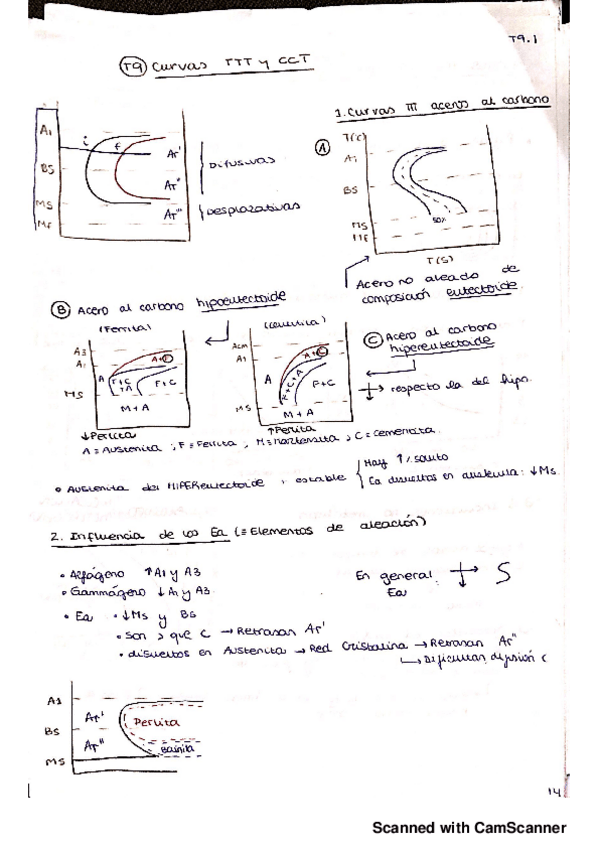 T9.1
T9 Curvas TTT y CCT
1. Curvas TTT aceros al carbono
A1
BS
MS
MF
i
f
Ar'
Ar''
Ar'''
Difusivas
Desplazativas
A
T(C)
A1
BS
MS
MF
50%
T(S)
Acero no aleado de
composición eutectoide.
B Acero al carbono hipoeutectoide
(Ferrita)
A3
A1
MS
A
A+F
F+C
+A
F+C
M+A
↓Perlita
(Cementita)
Acm
A1
MS
A
A+C
F+C+A
F+C
M+A
↑Perlita
C Acero al carbono
hipereutectoide
respecto la del hipo.
A = Austenita ; F = Ferrita , M = Martensita ; C = Cementita.
• Austenita del HIPEReutectoide , estable
Hay ↑% soluto
Ea disueltos en austenita: ↓Ms
2. Influencia de los Ea (= Elementos de aleación)
• Alfágeno ↑A1 y A3
• Gammágeno ↓A1 y A3
• Ea • ↓Ms y BS
• Son > que C → Retrasan Ar'
• disueltos en Austenita → Red Cristalina → Retrasan Ar''
Dificultan difusión C
En general
Ea
S
A1
BS
MS
Ar'
Ar''
Perlita
Bainita
14
Scanned with CamScanner